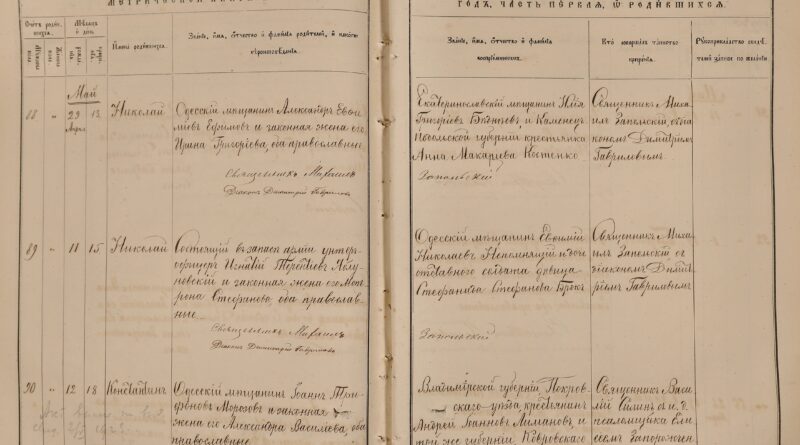 МЕТРИЧЕСКОЙ
ГОДЪ, ЧАСТЬ ПЕРВАЯ, Ѿ РОДИВШИХСЯ.
Счетъ родив-
Мѣсяцъ и день.
Имена родившихся.
Званіе, имя, отчество и фамилія родителей, и какого
вѣроисповѣданія.
Званіе, имя, отчество и фамилія
воспріемниковъ.
Кто совершалъ таинство
крещенія.
Рукоприкладство
Май
88 " 29 13 Николай
Апрѣл
Одесскій мѣщанинъ Александръ Евѳи
міевъ Ефимовъ и законная жена его
Ирина Григоріева, оба православные
Священникъ Михаилъ
Діаконъ Димитрій Гавриловъ
Екатеринославскій мѣщанинъ Илія
Григоріевъ и Каменец
Подольской губерніи крестьянка
Анна Макаріева Костенко
Запольскій
Священникъ Миха
илъ Запольскій съ діа
кономъ Димитріемъ
Гавриловымъ
89 " 11 15 Николай
Состоящій въ запасѣ арміи унтеръ
офицеръ Игнатій Терентіевъ
новскій и законная жена его Мат
рона Стефанова, оба православ
ные
Священникъ Михаилъ
Діаконъ Димитрій Гавриловъ
Одесскій мѣщанинъ Евѳимій
Николаевъ и дочь
отставного солдата дѣвица
Стефанида Стефанова
Запольскій
Священникъ Миха
илъ Запольскій съ
діакономъ Димит
ріемъ Гавриловымъ
90 " 12 18 Константинъ
Одесскій мѣщанинъ Іоаннъ Три
фоновъ Морозовъ и законная
жена его Александра Василіева, оба
православные
Владимірской губерніи, Покров
скаго уѣзда, крестьянинъ
Андрей Іоанновъ Лимановъ и
той же губерніи Ковровскаго
Священникъ Васи
лій съ и. д.
псаломщика Ели
сеемъ Запорожен